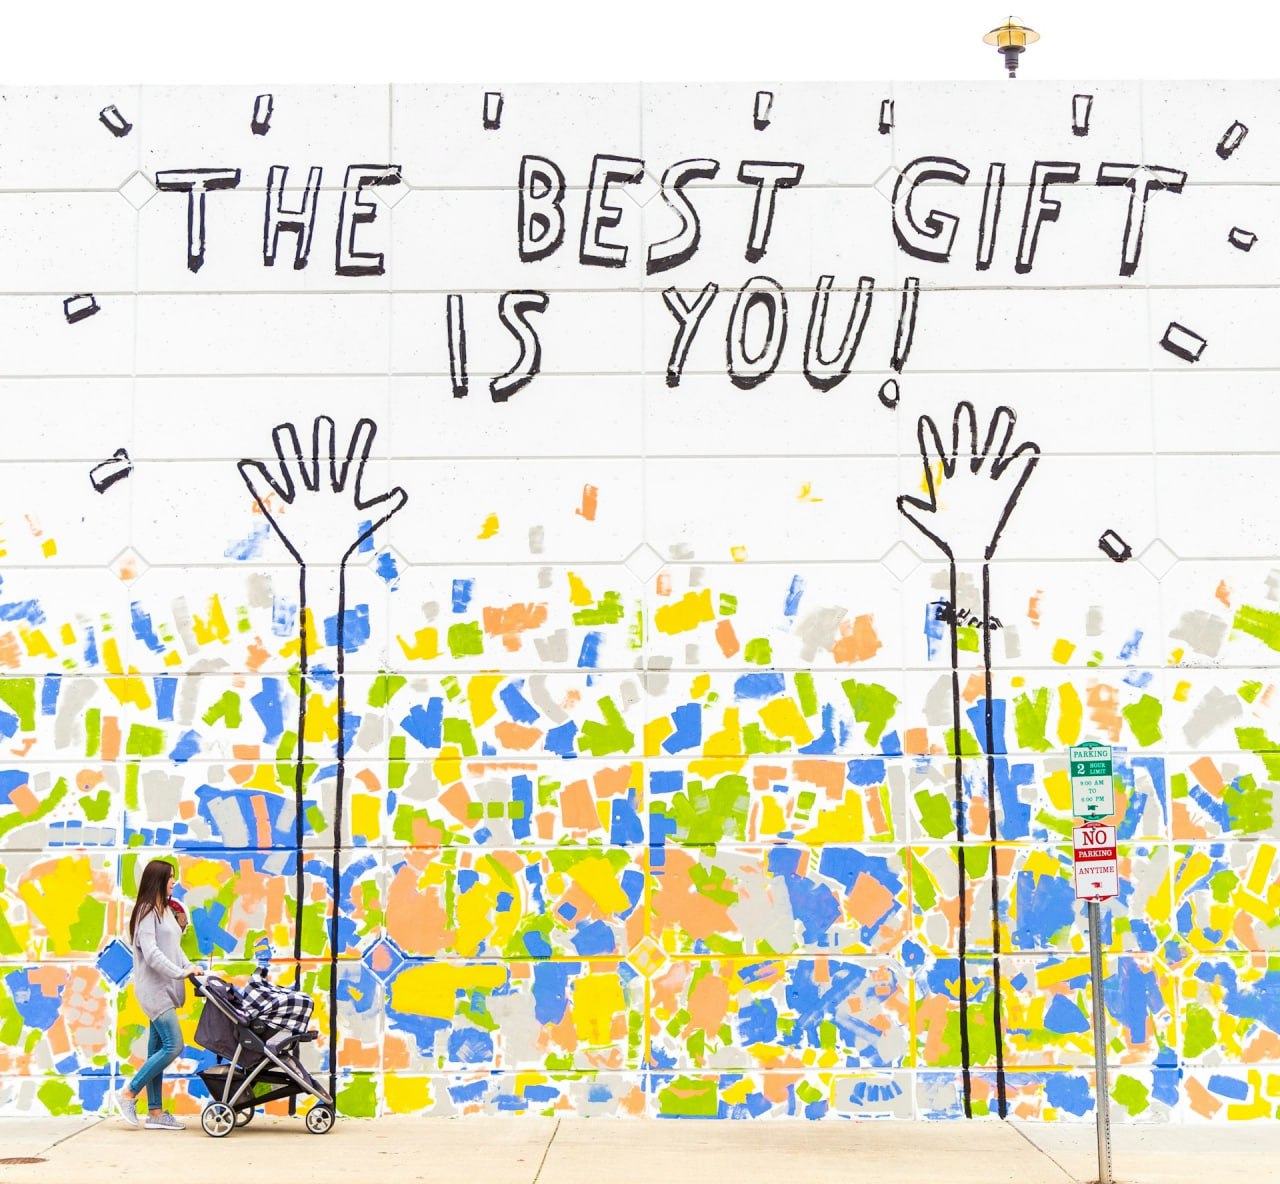 THE BEST GIFT
IS YOU!
PARKING
2 HOUR
LIMIT
9:00 AM
TO
6:00 PM
NO
PARKING
ANYTIME